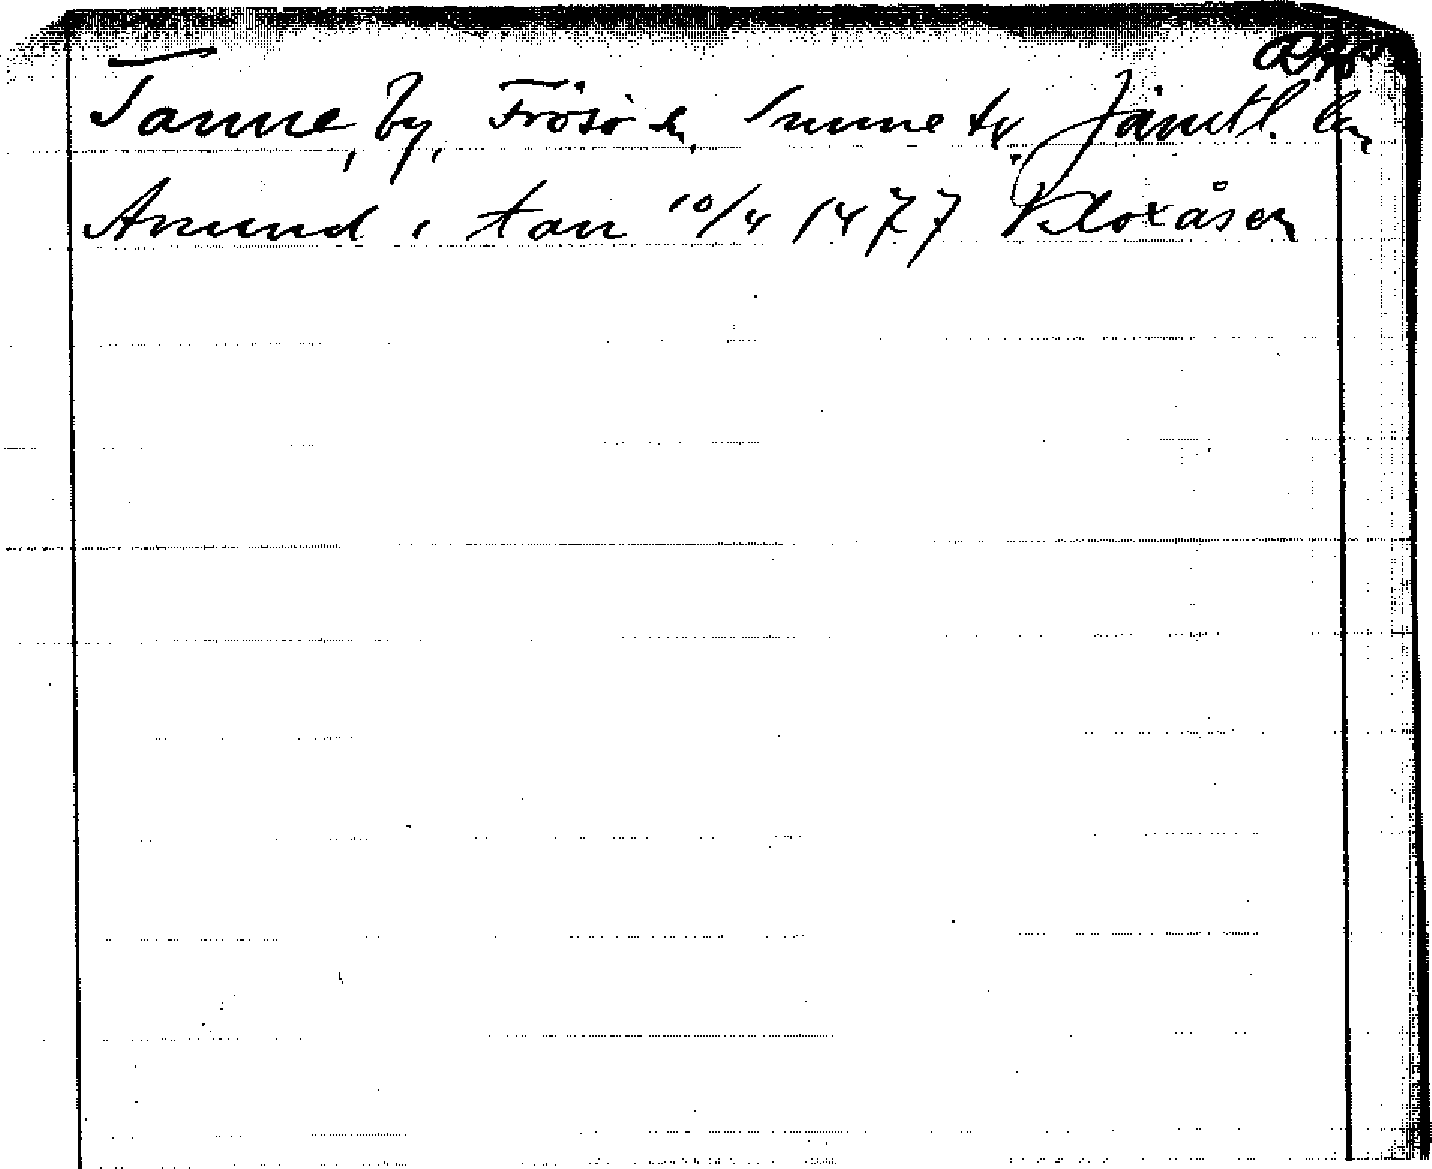 Tanne, by, Frösö sn, Sunne tg. Jämtl. län
Anund i tan 10/4 1477 Kloxåsen